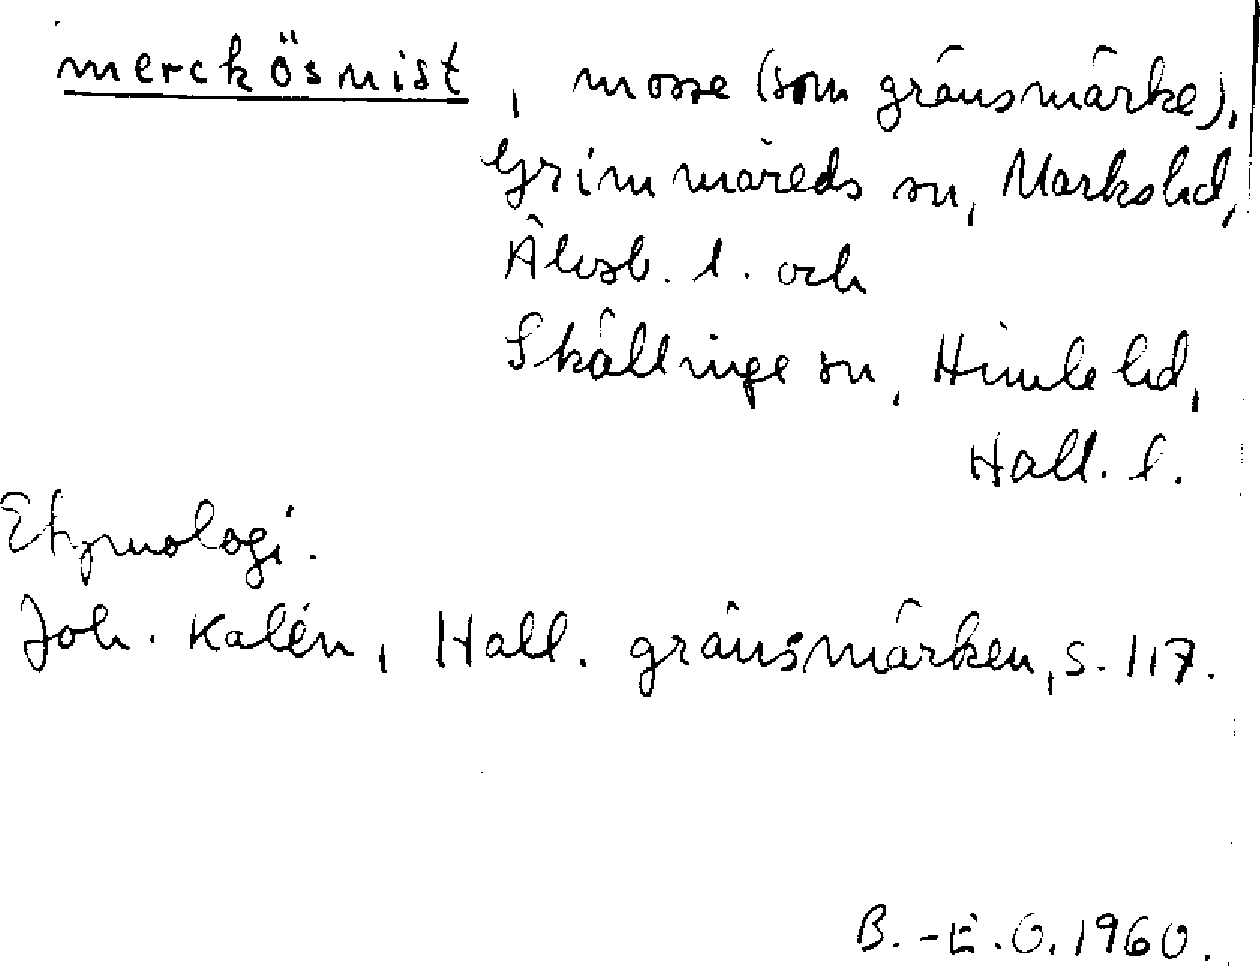 merckösmist, mosse (som gränsmärke),
Grimmäreds sn, Marks hd,
Älvsb. l. och
Skällinge sn, Himle hd,
Hall. l.
Etymologi.
Joh. Kalén, Hall. gränsmärken, s. 117.
B.-E.O. 1960.